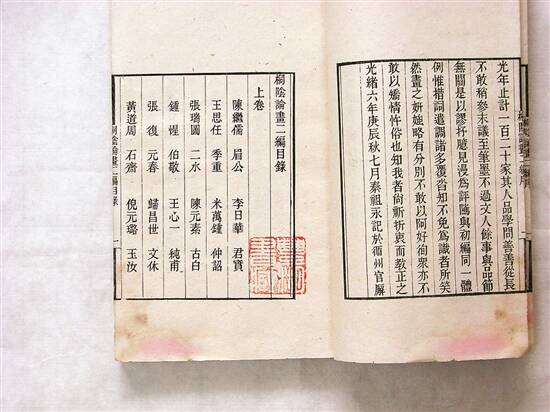 光年止計一百二十家其人品學問善善從長
不敢稍參末議至筆墨不過文人餘事與品節
無關是以謬抒臆見漫爲評隲與初編同一體
例惟措詞遣調諸多覆沓知不免爲識者所笑
然畫之妍媸略有分別不敢以阿好徇衆亦不
敢以矯情忤俗也知我者尙祈折衷而敎正之
光緒六年庚辰秋七月秦祖永記於循州官廨
桐陰論畫二編目錄
上卷
陳繼儒 眉公 李日華 君實
王思任 季重 米萬鍾 仲詔
張瑞圖 二水 陳元素 古白
鍾惺 伯敬 王心一 純甫
張復 元春 歸昌世 文休
黃道周 石齋 倪元璐 玉汝
桐陰論畫二編目錄 一